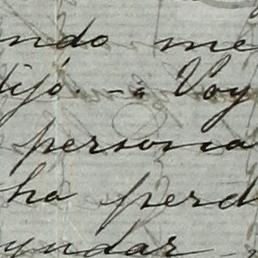 ndo me
dijo. - Voy
persona
ha perd
yudar